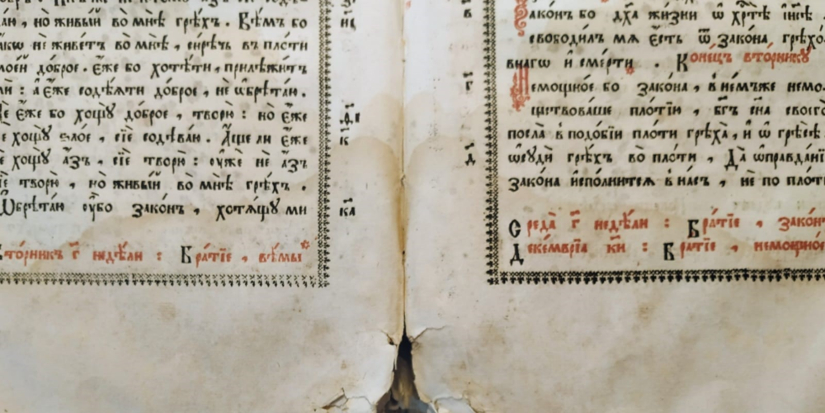 но живый во мнѣ грѣхъ . Вѣмъ бо
не живетъ во мнѣ , сирѣчь въ плоти
моей доброе . Єже бо хотѣти , прилѣжитъ
ми : а єже содѣяти доброе , не ѡбрѣтаю .
Не єже бо хощу доброе , творю : но єже
не хощу злое , сїе содѣваю . Аще ли єже
не хощу азъ , сїе творю : оуже не азъ
сїе творю , но живый во мнѣ грѣхъ .
Ѡбрѣтаю оубо законъ , хотящу ми
к
ка
вторникъ г҃ недѣли : Братїе , вѣмы
в
г
д
Законъ бо дх҃а жизни ѡ хр҃тѣ і҆и҃сѣ
свободилъ мя єсть ѿ закона грѣхо
внагѡ и смерти . Конецъ вторнику
Немощное бо закона , в немъже немо
ществоваше плотїю , бг҃ъ сн҃а своегѡ
посла в подобїи плоти грѣха , и ѡ грѣсѣ
ѡсуди грѣхъ во плоти , Да ѡправданї
закона исполнится в насъ , не по плоти
Среда г҃ недѣли : Братїе , закон
Декемврїа к҃и : Братїе , немощное